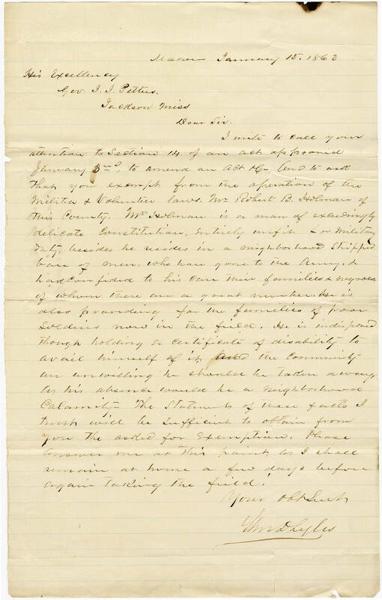 Macon January 15. 1863
His Excellency
Gov. J. J. Pettus,
Jackson Miss
Dear Sir
I write to call your
attention to Section 14 of an act approved
January 3rd, to amend an Act &c, and to ask
that you exempt from the operation of the
Militia & Volunteer laws. Mr Robert B. Holman of
this County. Mr Holman is a man of exceedingly
delicate Constitution, entirely unfit for Military
duty, besides he resides in a neighborhood stripped
bare of men, who have gone to the Army &
had confided to his care their families & negroes
of whom there are a great number. He is
also providing for the families of poor
Soldiers now in the field. He is indisposed
though holding a certificate of disability to
avail himself of it, and the community
are unwilling he should be taken away
as his absence would be a neighborhood
Calamity. The Statement of these facts I
trust will be sufficient to obtain from
you the order for exemption. Please
answer me at this point, as I shall
remain at home a few days before
again taking the field.
Your obt Svt
Thos D Lyles